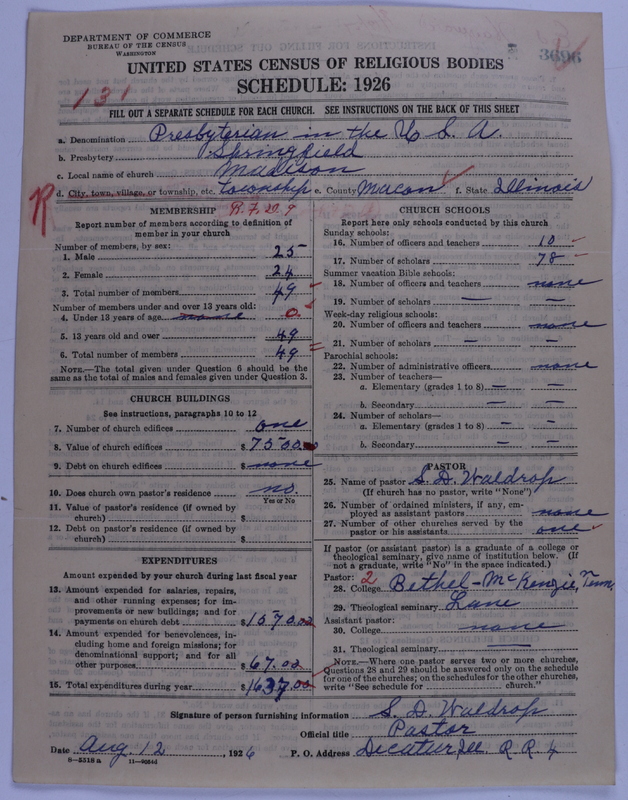 DEPARTMENT OF COMMERCE
BUREAU OF THE CENSUS
WASHINGTON
3696
UNITED STATES CENSUS OF RELIGIOUS BODIES
SCHEDULE: 1926
131
FILL OUT A SEPARATE SCHEDULE FOR EACH CHURCH. SEE INSTRUCTIONS ON THE BACK OF THIS SHEET
a. Denomination Presbyterian in the U S A.
b. Presbytery Springfield
c. Local name of church Madison
d. City, town, village, or township, etc. township e. County Macon f. State Illinois
R
MEMBERSHIP R.F.20.9
Report number of members according to definition of
member in your church
Number of members, by sex:
1. Male 25
2. Female 24
3. Total number of members 49
Number of members under and over 13 years old:
4. Under 13 years of age 0
5. 13 years old and over 49
6. Total number of members 49
NOTE.—The total given under Question 6 should be
same as the total of males and females given under Question 3.
CHURCH BUILDINGS
See instructions, paragraphs 10 to 12
7. Number of church edifices one
8. Value of church edifices $ 7500.00
9. Debt on church edifices $ none
10. Does church own pastor's residence no
Yes or No
11. Value of pastor's residence (if owned by
church) $
12. Debt on pastor's residence (if owned by
church) $
EXPENDITURES
Amount expended by your church during last fiscal year
13. Amount expended for salaries, repairs,
and other running expenses; for im-
provements or new buildings; and for
payments on church debt $ 1570.00
14. Amount expended for benevolences, in-
cluding home and foreign missions; for
denominational support; and for all
other purposes $ 67.00
15. Total expenditures during year $ 1637.00
CHURCH SCHOOLS
Report here only schools conducted by this church
Sunday schools:
16. Number of officers and teachers 10
17. Number of scholars 78
Summer vacation Bible schools:
18. Number of officers and teachers none
19. Number of scholars — —
Week-day religious schools:
20. Number of officers and teachers none
21. Number of scholars — —
Parochial schools:
22. Number of administrative officers none
23. Number of teachers—
a. Elementary (grades 1 to 8) — —
b. Secondary — —
24. Number of scholars—
a. Elementary (grades 1 to 8) — —
b. Secondary — —
PASTOR
25. Name of pastor S. D. Waldrop
(If church has no pastor, write "None")
26. Number of ordained ministers, if any, em-
ployed as assistant pastors none
27. Number of other churches served by the
pastor or his assistants one
If pastor (or assistant pastor) is a graduate of a college or
theological seminary, give name of institution below. (If
not a graduate, write "No" in the space indicated.)
Pastor: 2
28. College Bethel-McKenzie, Tenn.
29. Theological seminary Lane
Assistant pastor:
30. College none
31. Theological seminary —
NOTE.—Where one pastor serves two or more churches,
Questions 28 and 29 should be answered only on the schedule
for one of the churches; on the schedules for the other churches,
write "See schedule for church."
Signature of person furnishing information S. D. Waldrop
Official title Pastor
Date Aug 12, 1926 P. O. Address Decatur Ill R R 4
8—5518 a